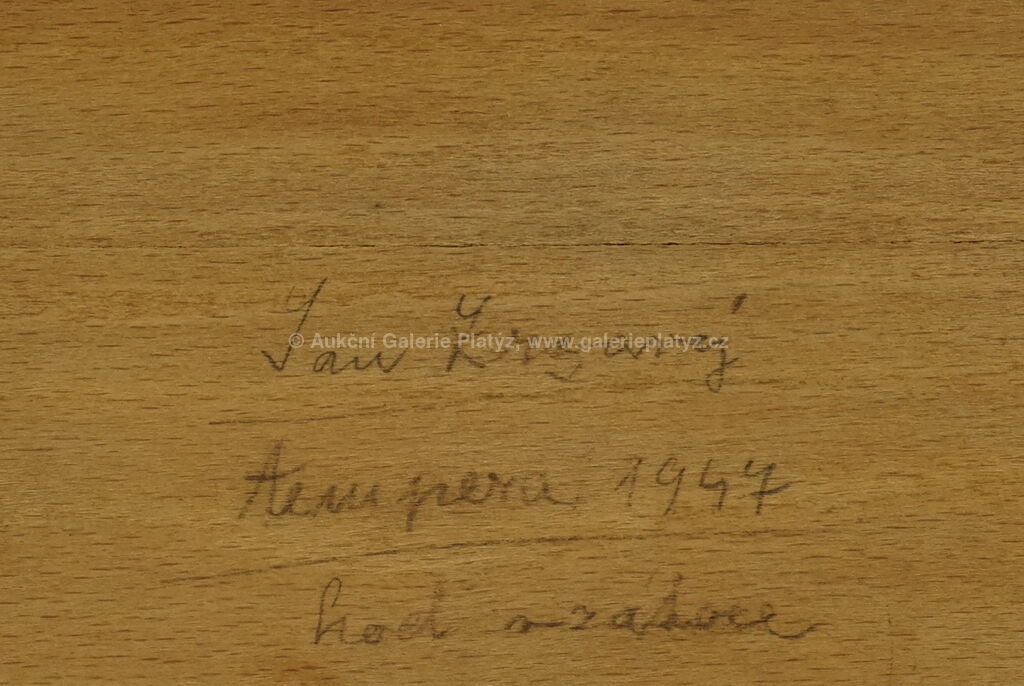 Jan Zrzavý
© Aukční Galerie Platýz, www.galerieplatyz.cz
tempera 1947
Lod v zátoce